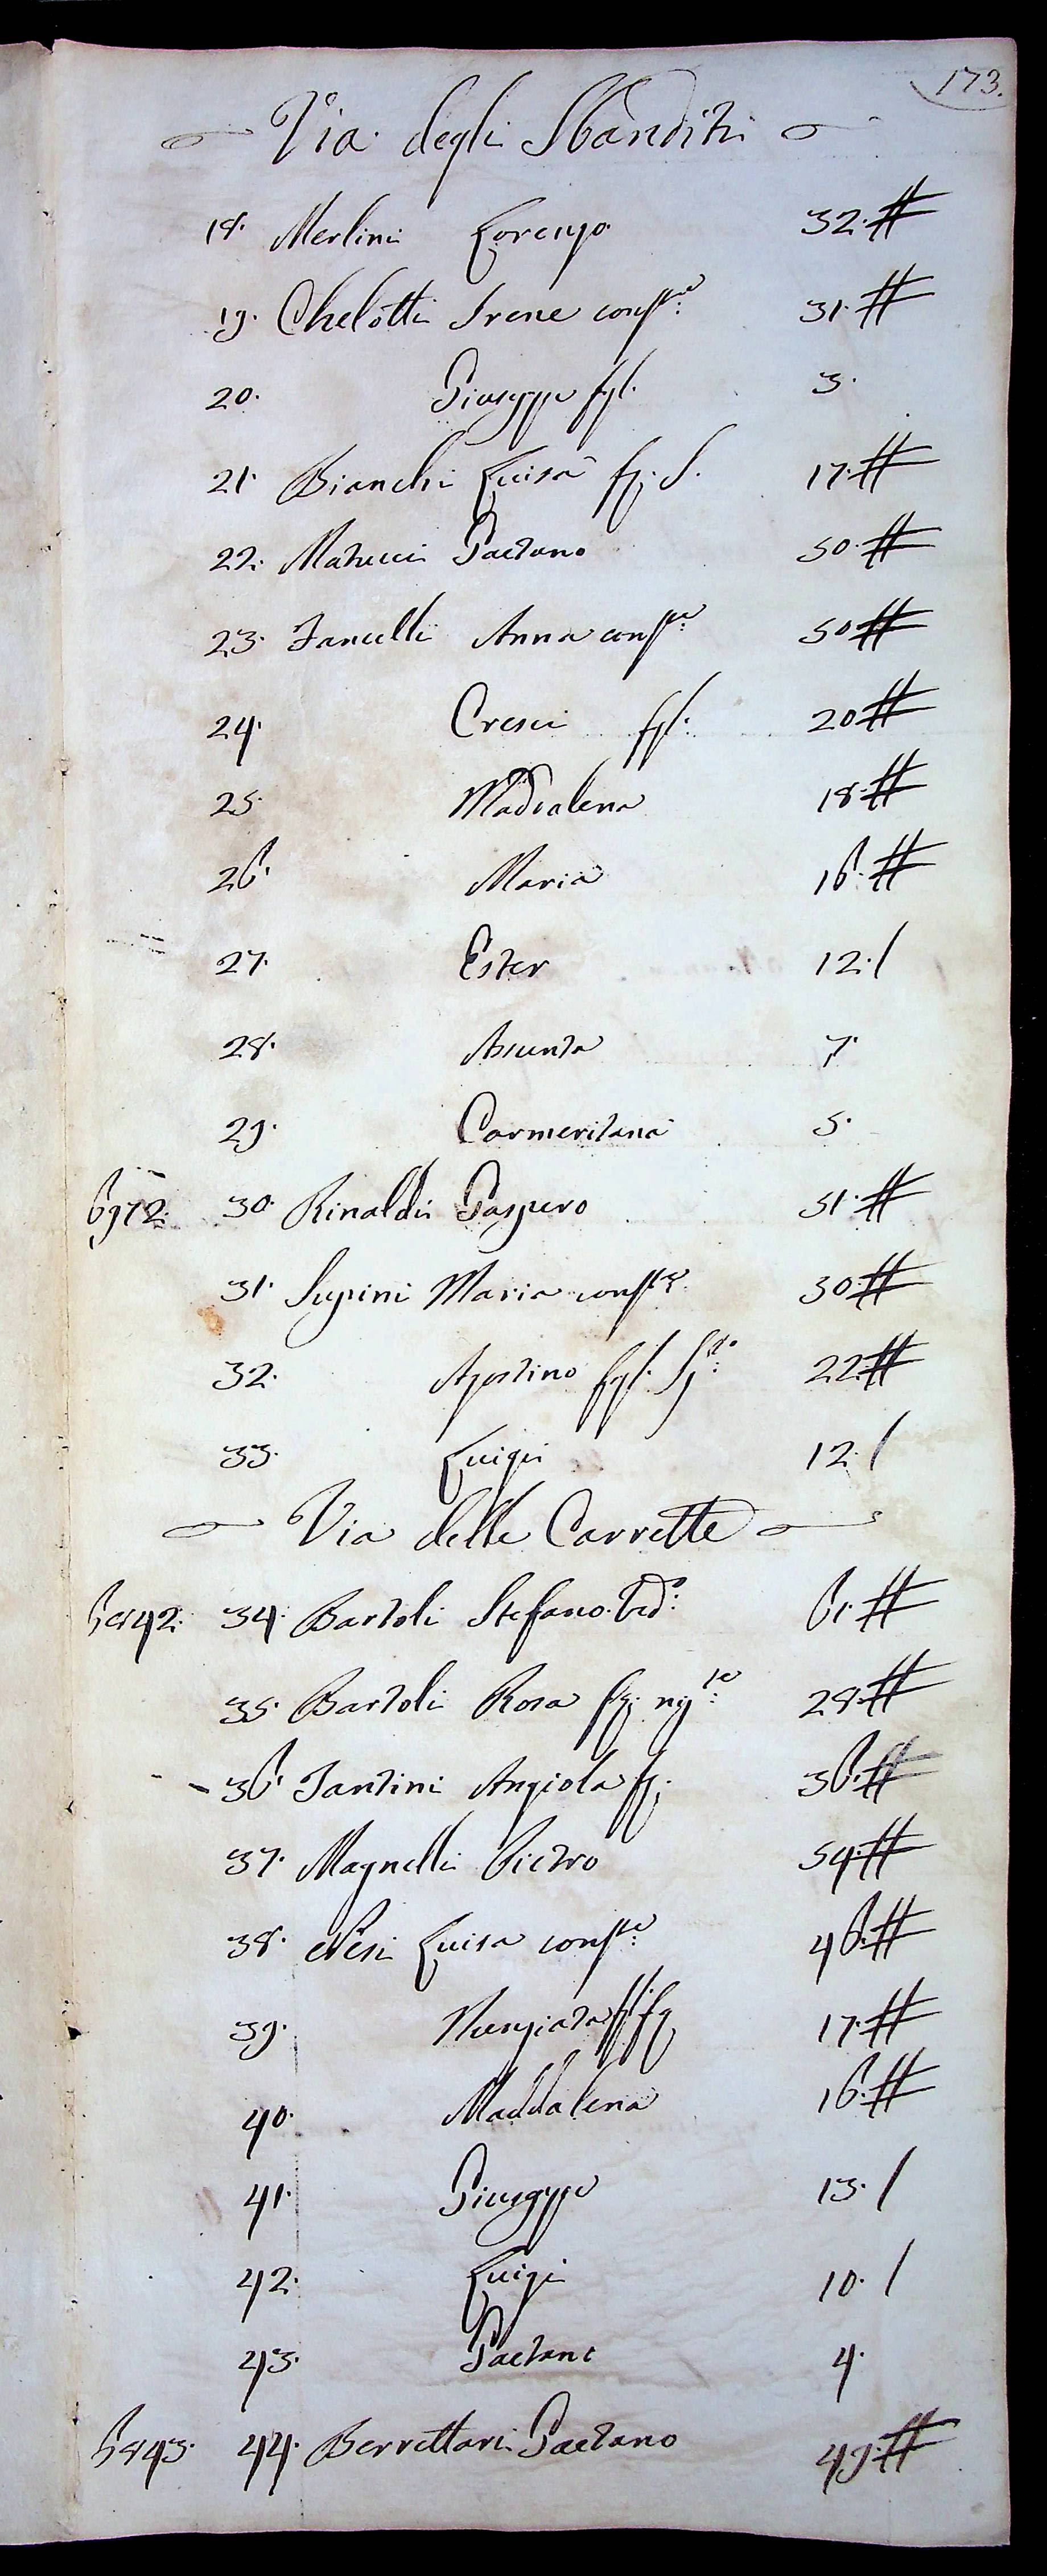 173.
Via degli Sbanditi
18. Merlini Lorenzo 32. #
19. Chelotti Irene cons.te 31. #
20. Giuseppe figl. 3.
21. Bianchi Luisa fg. S. 17. #
22. Matucci Gaetano 50. #
23. Fancelli Anna cons.te 50 #
24. Cresci figl. 20 #
25. Maddalena 18. #
26. Maria 16. #
27. Ester 12. /
28. Assunta 7.
29. Carmeritana 5.
6972. 30. Rinaldi Gaspero 51. #
31. Supini Maria cons.te 30 #
32. Agostino figl. Sp.to 22 #
33. Luigi 12. /
Via delle Carrette
34. Bartoli Stefano Ved.o 61. #
35. Bartoli Rosa fg. 28. #
36. Tantini Angiola fg. 36. #
37. Magnelli Pietro 54. #
38. Nesi Luisa cons.te 46. #
39. Nunziata figl. fg. 17. #
40. Maddalena 16. #
41. Giuseppe 13. /
42. Luigi 10. /
43. Gaetano 4.
44. Berrettari Gaetano 49. #